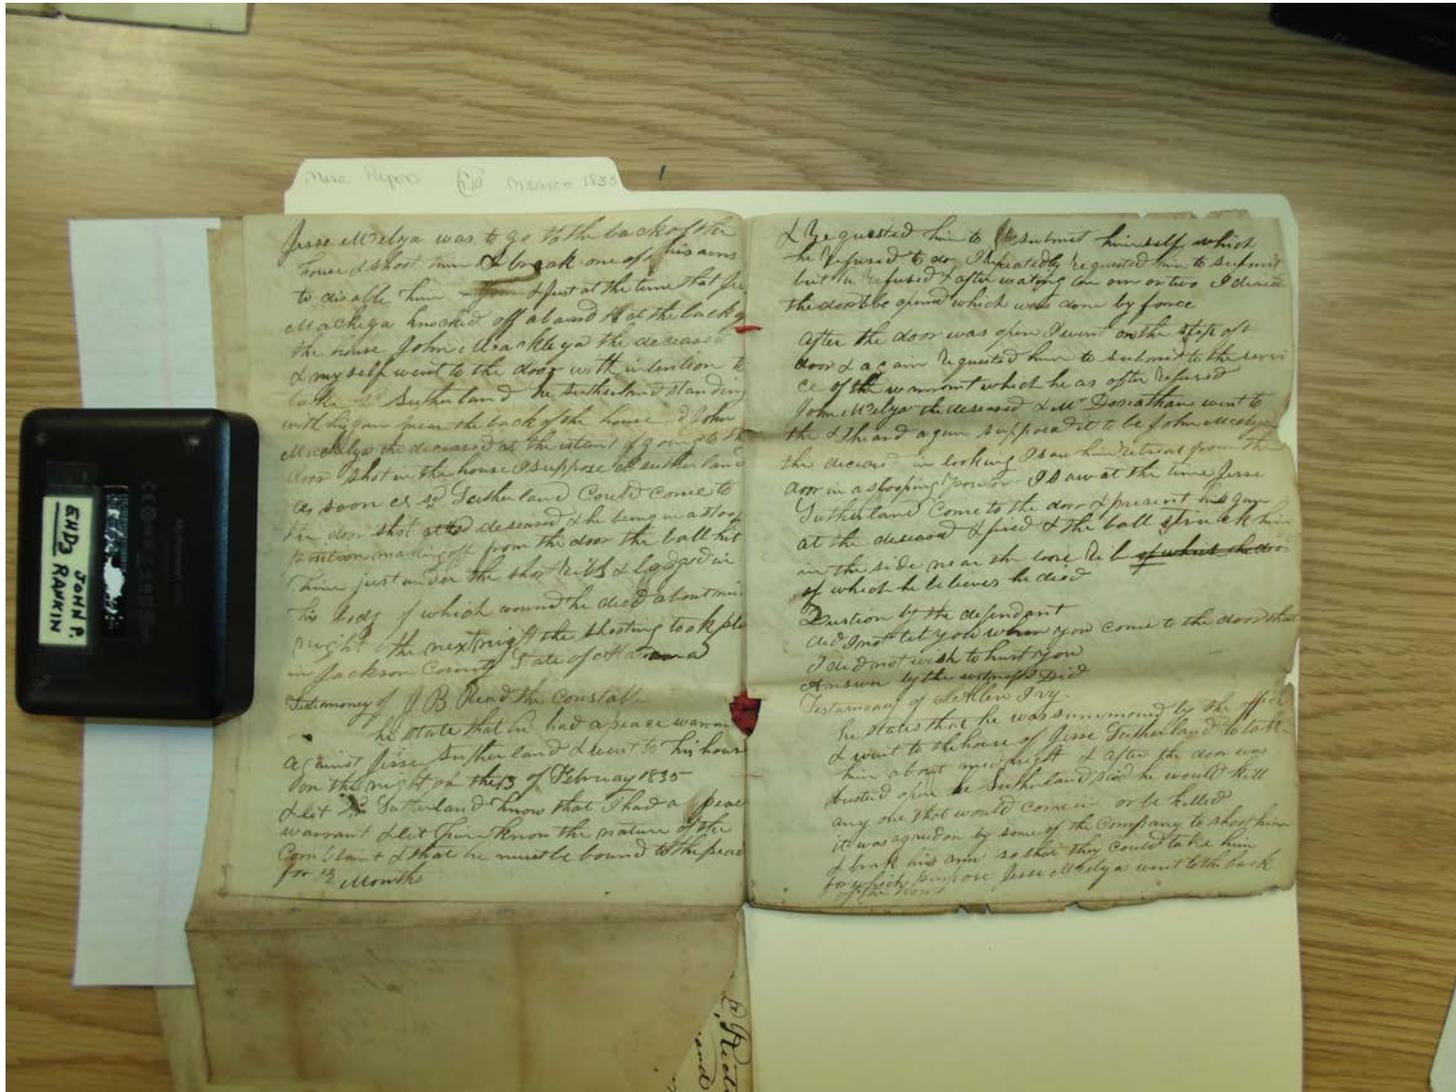 Misc Papers
1835
Jesse McElya was to go to the back of the
house & shoot him & break one of his arms
to disable him & just at the time that Jesse
Mackleya knocked off a board at the back of
the house John Mackleya the deceased
& my self went to the door with intention to
take Sutherland he Sutherland standing
with his gun near the back of the house John
Mackelya the deceased at the intent of going to the
door shot in the house I suppose at Sutherland
as soon as sd Sutherland could come to
the door shot at deseased & he being in a stoop
position making off from the door the ball hit
him just under the short ribs & lodged in
his body of which wound he died about mid
night the next night the shooting took place
in Jackson County State of Alabama
Testimoney of J. B. Read the Constable
he state that he had a peace warrant
against Jesse Sutherland & went to his house
on the night on the 13 of February 1835
& let Sutherland know that I had a peace
warrant & let him know the nature of the
Complaint & that he must be bound to the peace
for 12 Months
& Requested him to submit himself which
he Refused to do I Repeatedly Requested him to submit
but he Refused & after waiting an our or two I desired
the door to be opend which was done by force
after the door was open I went on the step of the
door & again Requested him to submit to the servi
ce of the warrant which he as ofter Refused
John McElya the deseased & Mr Donathan went to
the & I heard a gun supposed it to be John McElya
the deceased in looking I saw him retreat from the
door in a stooping position I saw at the time Jesse
Sutherland come to the door & present his gun
at the deseased & fired & the ball struck him
in the side near the lore Reb of which he died
of which he believes he died
Question by the defendant
did I not tel you when you come to the door that
I did not wish to hurt you
Answer by the witness Did
Testamoney of Allen Ivy
he states that he was summoned by the officer
& went to the house of Jesse Sutherland to take
him about midnight & after the door was
busted open he Sutherland said he would kill
any one that would come in or be killed
it was agreed on by some of the Company to shoot him
& brak his arm so that they could take him
for which purpose Jesse McElya went to the back
of the house
JOHN P.
RANKIN
and